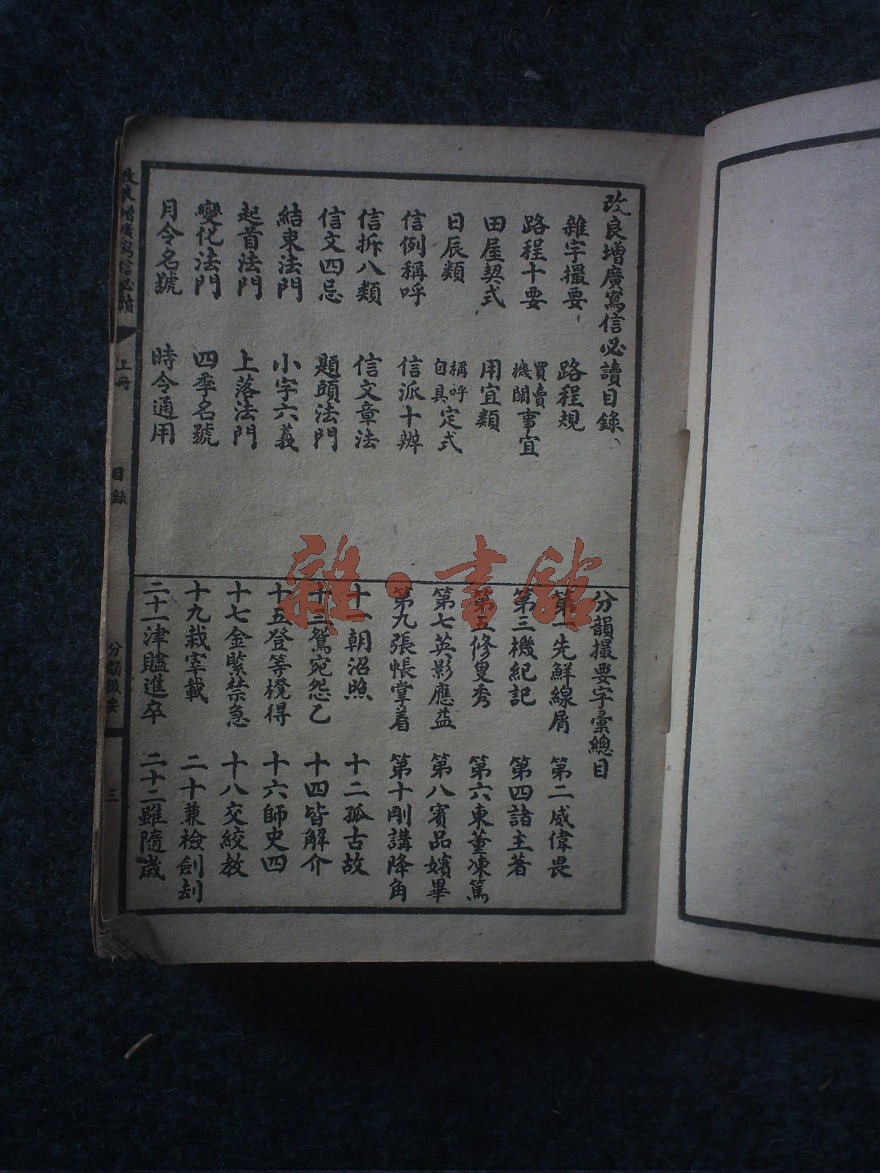 改良增廣寫信必讀目錄
雜字撮要 路程規
路程十要 買賣機關事宜
田屋契式 用宜類
日辰類 稱呼自具定式
信例稱呼 信派十辨
信拆八類 信文章法
信文四忌 題頭法門
結束法門 小字六義
起首法門 上落法門
變化法門 四季名號
月令名號 時令通用
分韻撮要字彙總目
第一先鮮線屑 第二威偉畏
第三機紀記 第四諸主著
第五修叟秀 第六東董凍篤
第七英影應益 第八賓品嬪畢
第九張帳掌着 第十剛講降角
十一朝沼照 十二孤古故
十三鴛宛怨乙 十四皆解介
十五登等櫈得 十六師史四
十七金錦禁急 十八交絞教
十九栽宰載 二十兼檢劍刦
二十一津贐進卒 二十二雖隨歲
改良增廣寫信必讀 上冊 目錄 分韻撮要 三
雜·書館